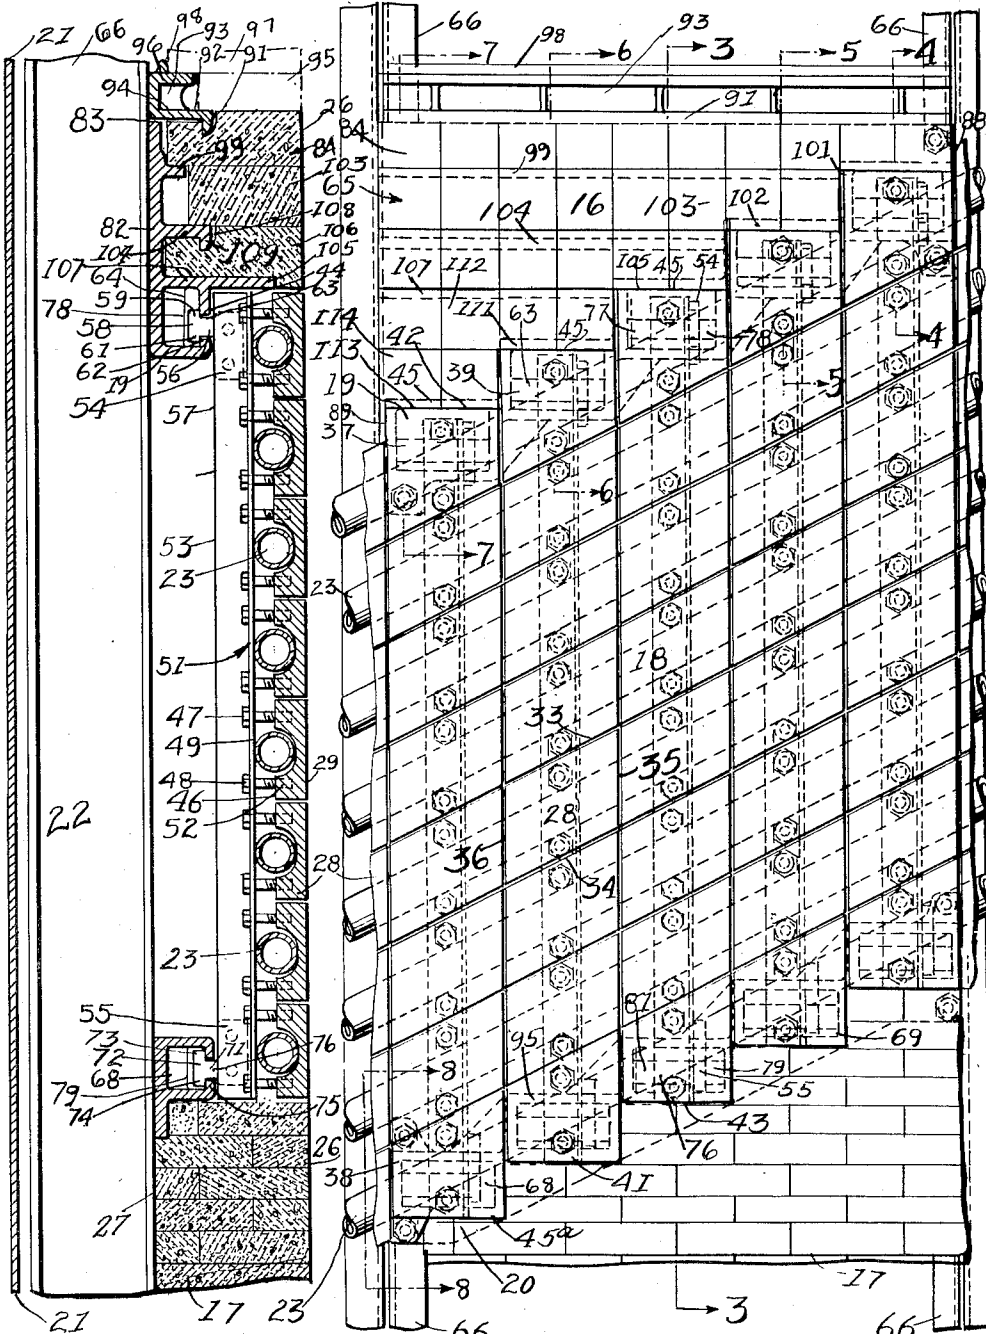 21
66
98
93
97
96
92
91
95
94
83
26
84
99
103
108
82
106
109
105
107
64
44
59
63
78
58
61
62
19
56
54
57
53
23
51
47
49
29
48
46
52
22
28
23
55
73
72
71
76
68
79
74
75
26
27
17
21
66
7
98
6
93
3
5
66
4
91
84
88
99
101
65
104
16
103
102
107
112
105
45
54
111
63
45
77
78
4
114
42
113
39
19
45
5
89
37
6
7
23
18
33
35
28
36
34
8
95
87
79
69
55
43
76
38
41
68
45a
20
17
23
8
3
66
66